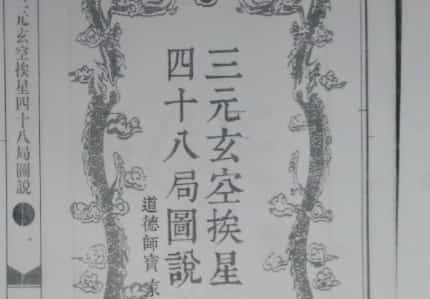 三元玄空挨星
四十八局圖說
道德師寶
元玄空挨星四十八局圖說